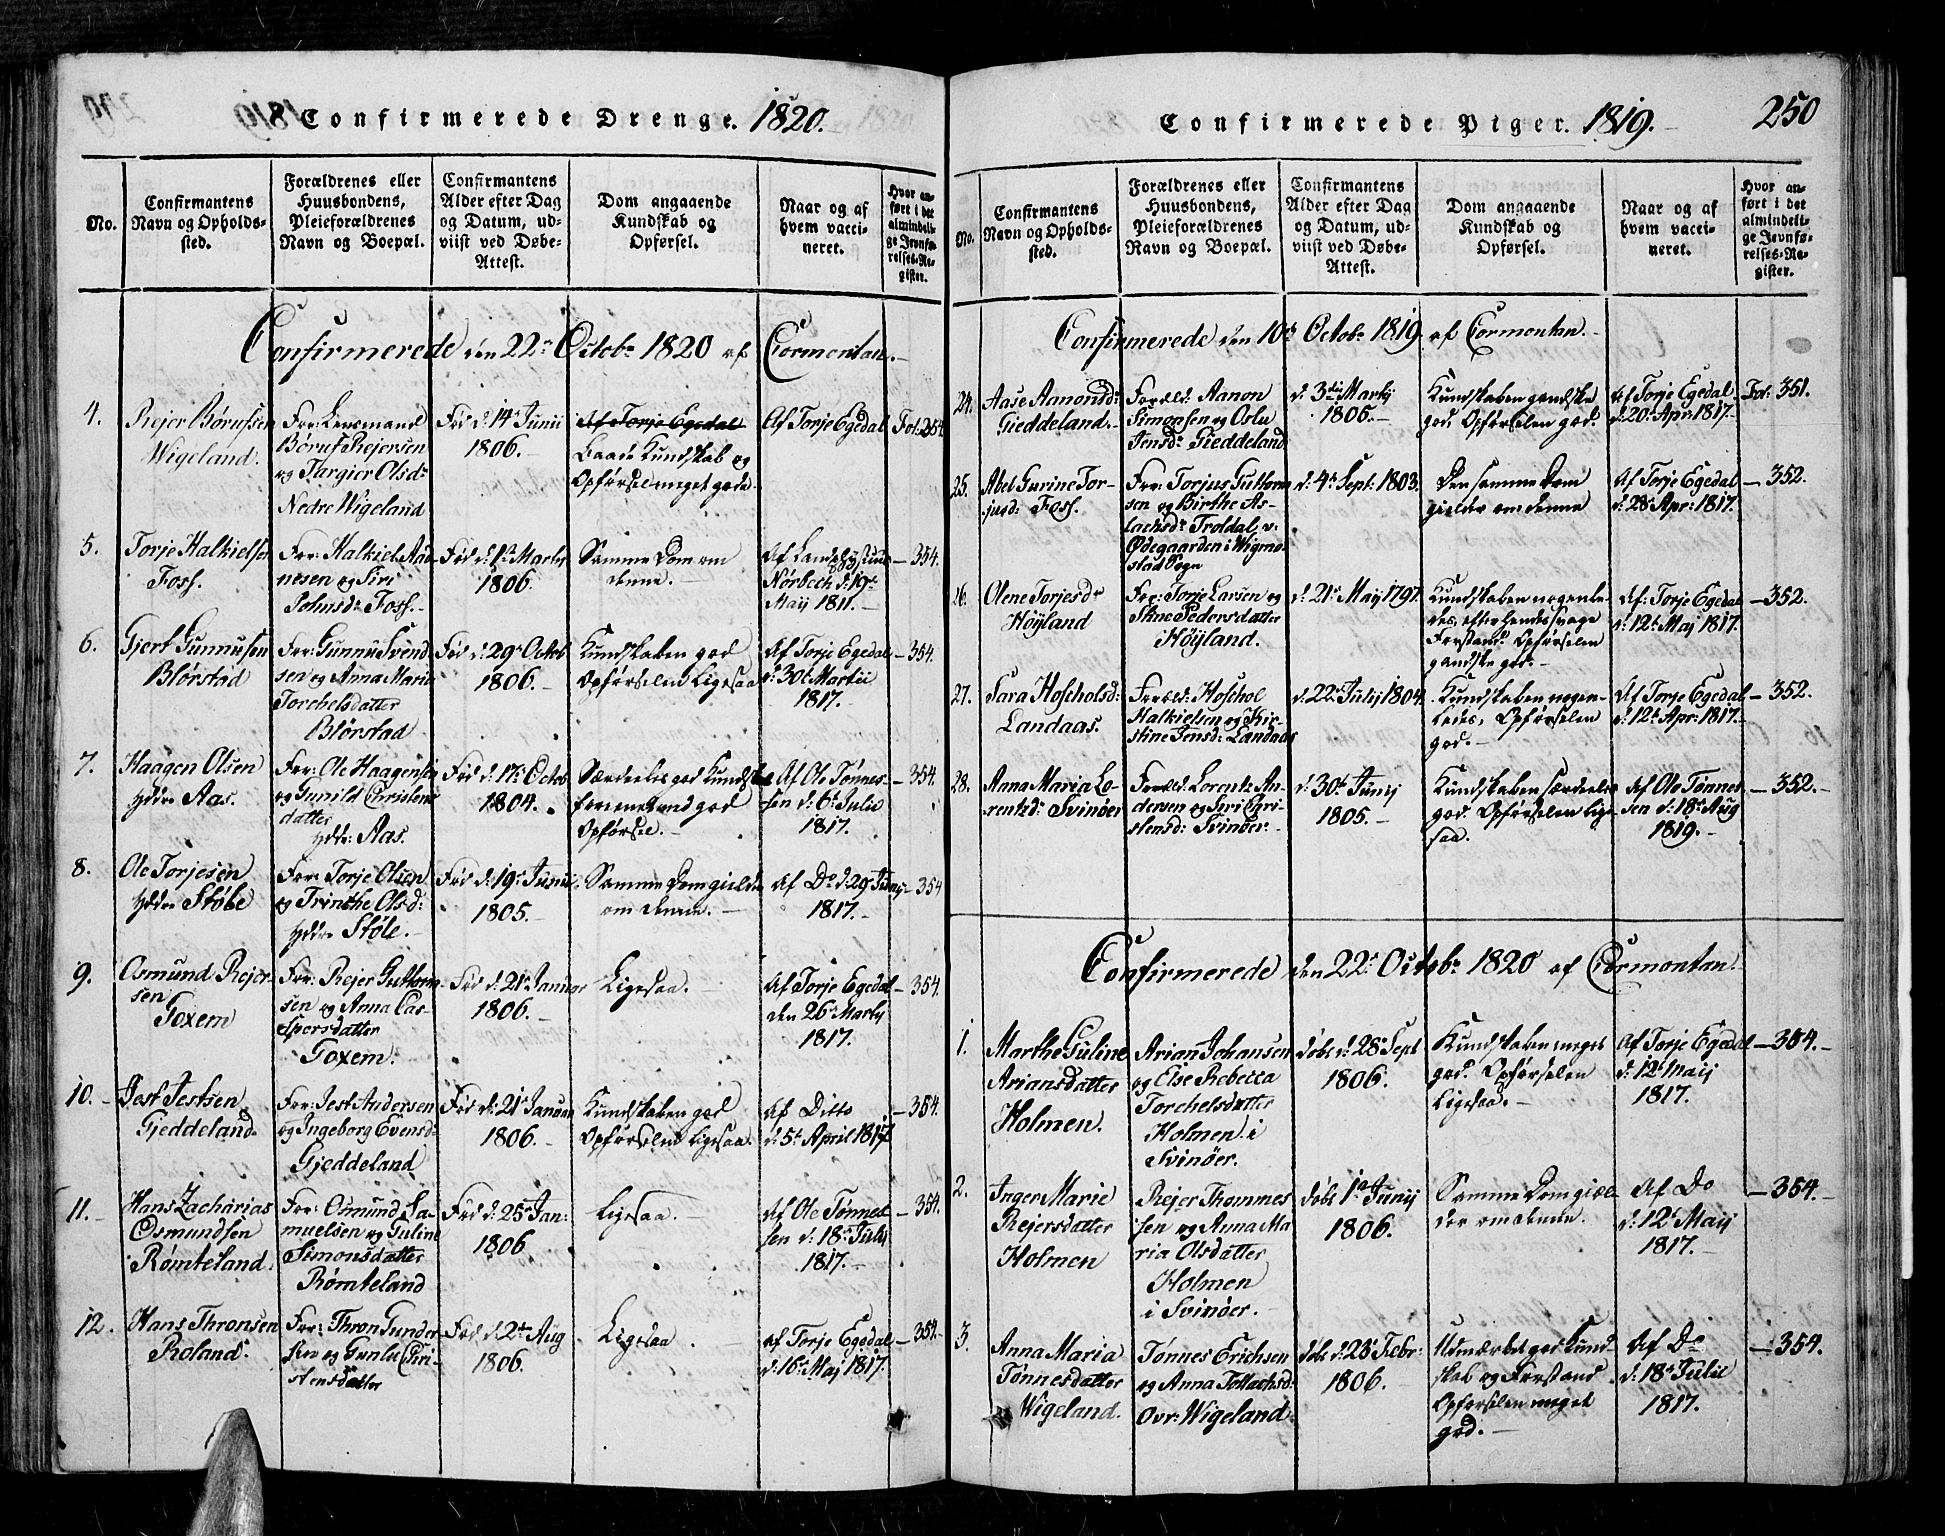 Confirmerede Drenge. 1820.
No.
Confirmantens
Navn og Opholds-
sted.
Forældrenes eller
Huusbondens,
Pleieforældrenes
Navn og Boepæl.
Confirmantens
Alder efter Dag
og Datum, ud-
viist ved Døbe-
Attest.
Dom angaaende
Kundskab og
Opførsel.
Naar og af
hvem vacci-
neret.
Hvor an-
ført i det
almindeli-
ge Jevnfø-
relses-Re-
gister.
Confirmerede den 22de Octobr 1820 af Cormontan.
4.
Rejer Børufsen
Wigeland.
For: Lensmand
Børuf Rejersen
og Targier Olsdr
Nedre Wigeland
Fød d: 14de Junii
1806.
Af Torje Egedal
Baade Kundskab og
Opførsel meget gode.
Af Torje Egedal
Fol: 354
5.
Torje Halkielsen
Foss.
For: Halkiel Aa-
nesen og Siri
Johnsdr Foss.
Fød d: 1ste Martij
1806.
Samme Dom om
denne.
Nörbech d: 19de
Maij 1811.
354.
6.
Gjert Gunnusen
Blørstad
For: Gunnu Svend
sen og Anna Maria
Torchelsdatter
Blørstad
Fød d: 29de Octob
1806.
Kundskaben god
Opførselen Ligesaa
Af Torje Egedal
d: 30te Martii
1817.
354.
7.
Haagen Olsen
Ydre Aas.
For: Ole Haagensen
og Gunild Christens
datter
Ydre Aas.
Fød d: 17de Octob
1804.
Særdeeles god Kundsk
god
Opførsel.
Af Ole Tønnes-
sen d: 6te Julii
1817.
354.
8.
Ole Torjesen
Ydre Støle
For: Torje Olsen
og Trinche Olsd:
Ydre Støle.
Fød d: 19de Junii
1805.
Samme Dom gielder
om denne.
Af Do d: 29de Junij
1817.
354
9.
Osmund Rejer-
sen
Foxem
For: Rejer Guttorm
sen og Anna Cas-
spersdatter
Foxem.
Fød d: 21de Januar
1806.
Ligesaa.
Af Torje Egedal
den 26de Martij
1817.
354.
10.
Jest Jestsen
Gjeddeland.
For: Jest Andersen
og Ingeborg Evensd:
Gjeddeland
Fød d: 21de Januar
1806.
Kundskaben god
Opførselen ligesaa.
Af Ditto
d: 5te April 1817
354.
11.
Hans Zacharias
Osmundsen
Rømteland.
For: Osmund Sa-
muelsen og Guline
Simonsdatter
Rømteland
Fød d: 25de Jan:
1806
Ligesaa.
Af Ole Tønnes
sen d: 18de Julij
1817.
354.
12.
Hans Thronsen
Roland.
For: Thron Gunder
sen og Gunlu Chri-
stensdatter
Fød d: 2den Aug
1806.
Ligesaa
af Torje Egedal
d: 16de Maj 1817.
354.
Confirmerede Piger. 1819.
250
No.
Confirmantens
Navn og Opholds-
sted.
Forældrenes eller
Huusbondens,
Pleieforældrenes
Navn og Boepæl.
Confirmantens
Alder efter Dag
og Datum, ud-
viist ved Døbe-
Attest.
Dom angaaende
Kundskab og
Opførsel.
Naar og af
hvem vacci-
neret.
Hvor an-
ført i det
almindeli-
ge Jevnfø-
relses-Re-
gister.
Confirmerede den 10de Octobr 1819. af Cormontan.
24.
Aase Aanondsdr
Gieddeland.
Foræld: Aanon
Simonsen og Oslu
Jensdr Gieddeland
d: 3die Martij
1806.
Kundskaben gandske
god, Opførselen god.
Af Torje Egedal
d: 20de Apr: 1817.
Fol: 351.
25.
Abel Gurine Tor-
jusdr Foss.
For: Torjus Guttorm
sen og Birthe As-
lachsdr Troldal v:
Ødegaarden i Wigmo-
stad Sogn
d: 4de Sept: 1803.
Den samme Dom
gielder om denne
Af Torje Egedal
d: 28de Apr: 1817.
352.
26.
Olene Torjesdr
Höÿland
For: Torje Larsen og
Stine Pedersdatter
Höÿland.
d: 21de Maij 1797.
Kundskaben nogenle-
des, efter hendes svage
Forstand. Opførselen
gandske god.
Af: Torje Egedal
d: 12te Maj 1817.
352.
27.
Sara Hoscholsd:
Landaas.
Foræld: Hoschol
Halkielsen og Kir-
stine Jensd: Landaas
d: 22de Julij 1804.
Kundskaben nogen-
ledes, Opførselen
god.
Af Torje Egedal
d: 12te Apr: 1817.
352.
28.
Anna Maria Lo-
rentsdr Svinöer
Foræld: Lorentz An-
dersen og Siri Gri-
stensd: Svinöer.
d: 30te Junij
1805.
Kundskaben særdeeles
god. Opførselen lige-
saa.
Af Ole Tønnes
sen d: 18de Aug
1819.
352.
Confirmerede den 22de Octobr 1820 af Cormontan.
1.
Marthe Guline
Ariansdatter
Holmen.
Arian Johansen
og Else Rebecca
Torchelsdatter
Holmen i
Svinöer.
Døbt d: 28de Sept
1806.
Kundskaben meget
god. Opførselen
Ligesaa.
Af Torje Egedal
d: 12te Maij
1817.
354.
2.
Inger Marie
Rejersdatter
Holmen
Rejer Thommes
sen og Anna Ma
ria Olsdatter
Holmen
i Svinöer.
døbt 1ste Junij
1806.
Samme Dom giæl-
der om denne.
Af Do
d: 12te Maij
1817.
354.
3.
Anna Maria
Tønnesdatter
Wigeland.
Tønnes Erichsen
og Anna Tollachsd:
Ovr: Wigeland.
døbt d: 23de Febr:
1806.
Udmærket god Kund-
skab og Forstand
Opførselen meget
god.
Af Do
d: 18de Julii
1817.
354.